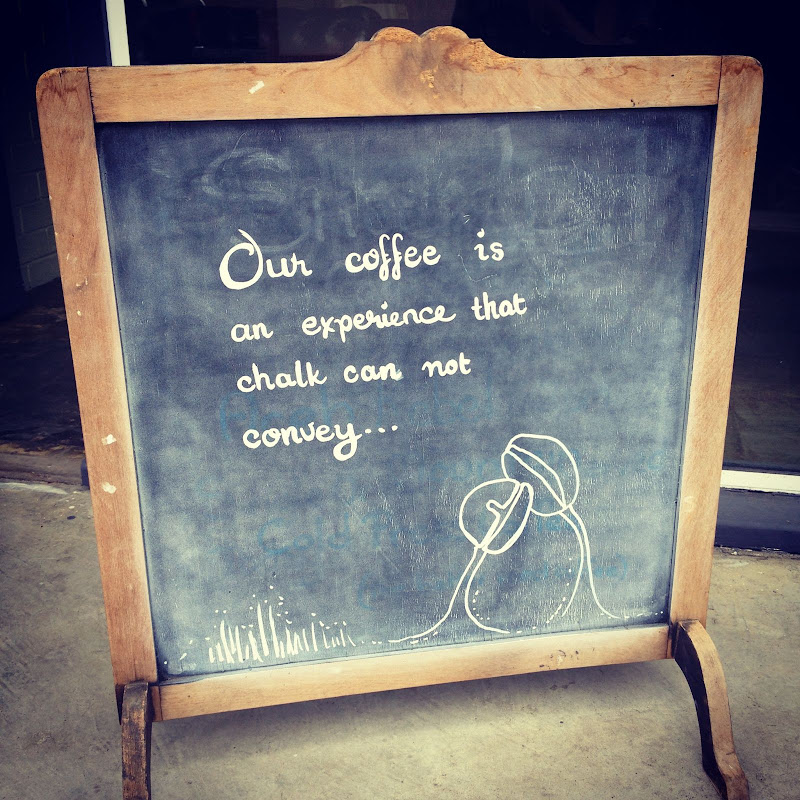 Our coffee is
an experience that
chalk can not
convey...